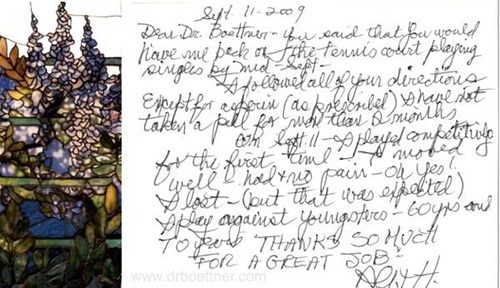 Sept. 11-2009
Dear Dr. Boettner - You said that you would
have me back on the tennis court playing
singles by mid Sept -
I followed all of your directions
Except for aspirin (as prescribed) I have not
taken a pill for more than 2 months
On Sept. 11 - I played competitively
for the first time! - I moved
well & had no pain - Oh yes!
I lost - (but that was expected)
I play against youngsters - 60 yrs and
70 years THANKS SO MUCH!!
FOR A GREAT JOB!!
www.drboettner.com